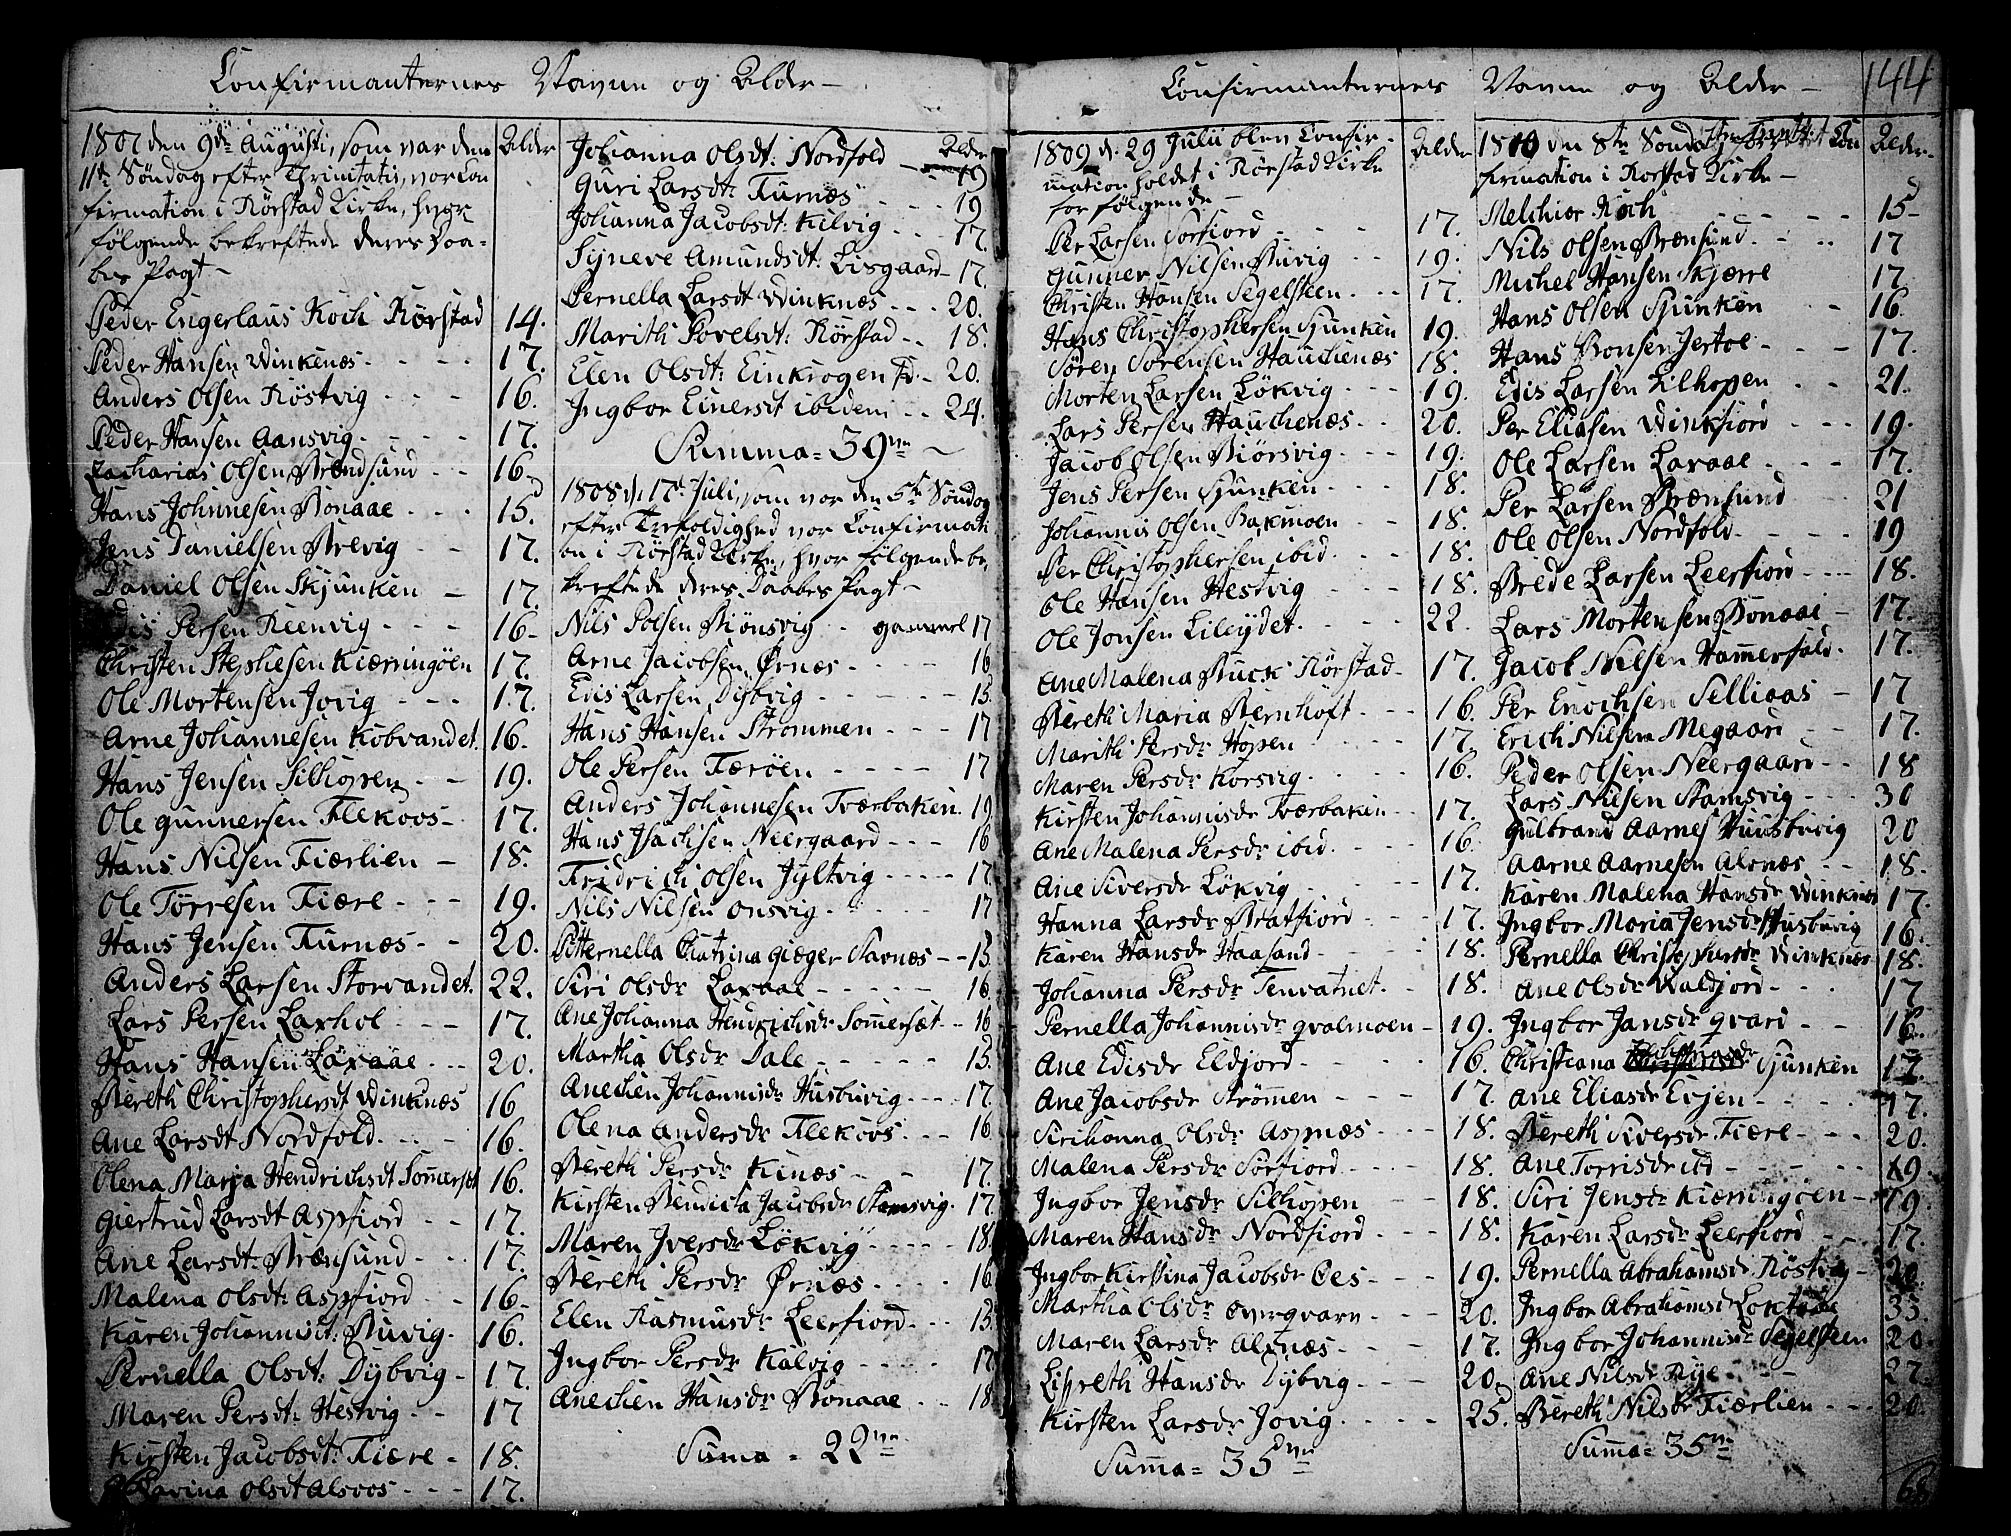 Confirmanternes Navne og Alder –
1807 den 9de Augusti, som var den Alder
11te Söndag efter Trinitatis, var Con
firmation i Rörstad Kirke, hvor
fölgende bekreftede deres Daa-
bes Pagt –
Peder Engerlaus Koch Rörstad 14.
Peder Hansen Winkenæs 17.
Anders Olsen Röstvig 16.
Peder Hansen Aansvig 17.
Zacharias Olsen Brændsund 16
Hans Johnnesen Bonaae 15.
Jens Danielsen Brevig 17.
Daniel Olsen Skjunken 17.
Edis Persen Reenvig 16
Christen Stephesen Kiærringöen 17.
Ole Mortensen Jovig 17.
Arne Johannesen Kobvandet. 16.
Hans Jensen Silhopen 19.
Ole Gunnersen Flekoos 17.
Hans Nilsen Fiærlien 18.
Ole Törresen Fiære 19.
Hans Jensen Furnæs 20.
Anders Larsen Storvandet. 22.
Lars Persen Laxhol 17.
Hans Hansen Laxaae 20.
Bereth Christophersdt Winknæs 16
Ane Larsdt Nordfold 16.
Olena Marja Hendrichsdt Sommerset 16.
Giertrud Larsdt Aspfiord 17.
Ane Larsdt: Brænsund 17.
Malena Olsdt: Aspfiord 16
Karen Johannisdt: Buvig 16.
Pernella Olsdt: Dybvig 17.
Maren Persdt: Hestvig 17
Kirsten Jacobsdt: Fiære 18.
Olsdt Alsvos 17.
Alder
Johanna Olsdt: Nordfold 19
Guri Larsdt: Furnæs 19
Johanna Jacobsdt: Kilvig 17.
Syneve Amundsdt: Lisgaard 17.
Pernella Larsdt Winknæs 20.
Marith Povelsdt: Rörstad 18.
Elen Olsdt: Einkrogen 20.
Ingbor Einersdt ibidem 24.
Summa = 39ve
1808 d. 17de Juli, som var den 5te Söndag
efter Trefoldighed var Confirmati
on i Rörstad Kirke, hvor fölgende be
kreftede deres Daabes Pagt –
Nils Polsen Biönsvig gammel 17
Arne Jacobsen Örnæs 16
Edis Larsen Dijbvig 15
Hans Hansen Strömmen 17
Ole Persen Færöen 17
Anders Johannesen Tværbaken 19
Hans Isachsen Neergaard 16
Fridrich Olsen Jyltvig 17
Nils Nilsen Onsvig 17
Petternella Chatrina Giæger Savnæs 15
Siri Olsdr Laxaae 16
Ane Johanna Hendrichsdr Sommersæt 16
Martha Olsdr Dale 15.
Anechen Johannisdr Husbüvig 17.
Olena Andersdr Flekoos 16
Bereth Persdr Kinæs 17.
Kirsten Bendicta Jacobsdr Stamsvig 17
Maren Iversdr Lökvig 18
Bereth Persdr Örnæs 16
Elen Rasmusdr Leerfiord 15
Ingbor Persdr Kalvig 17
Anechen Hansdr Bonaae 18
Suma = 22ve
Confirmanternes Navne og Alder – 144
1809 d. 29 Julii blev Confir- Alder
mation holdet i Rörstad Kirke
for fölgende –
Per Larsen Sörfiord 17.
Gunner Nilsen Buvig 19.
Christen Hansen Segelsteen 17.
Hans Christophersen Sjunken 19.
Sören Sörensen Hauchenæs 18.
Morten Larsen Lökvig 19.
Lars Persen Hauchenæs 20.
Jacob Olsen Biörsvig 19.
Jens Persen Sjunken 18.
Johannis Olsen Bakmoen 18.
Per Christophersen ibid. 18.
Ole Hansen Hestvig 18.
Ole Jonsen Lileydet 22.
Ane Malena Buck Rörstad 17.
Bereth Maria Bernhoft 16.
Marith Persdr Hopen 17
Maren Persdr Korsvig 16.
Kirsten Johannisdr Tværbaken 17.
Ane Malena Persdr ibid. 16
Ane Siversdr Lökvig 17.
Hanna Larsdr Bratfiord 17.
Karen Hansdr Haasand 18.
Johanna Persdr Tenvatnet 18.
Pernella Johannisdr Qvalmoen 19.
Ane Edisdr Eldjord 16.
Ane Jacobsdr Strömen 17.
Sirihanna Olsdr Aspnæs 18.
Malena Persdr Sörfiord 18.
Ingbor Jensdr Silhopen 18.
Maren Hansdr Nordfiord 18.
Ingbor Kirstina Jacobsdr Oes 19.
Martha Olsdr Overqvarv 20.
Maren Larsdr Alxnæs 17.
Lisbeth Hansdr Dijbvig 20
Kirsten Larsdr Jovig 25.
Summa = 35ve
1810 den 8te Söndag Con Alder
firmation i Rorstad Kirke –
Melchior Koch 15
Nils Olsen Brænsund 17
Michel Hansen Skjærre 17
Hans Olsen Sjunken 16.
Hans Bonsen Jertoe 17.
Edis Larsen Lilhopen 21.
Per Eliasen Winkfiord 19.
Ole Larsen Laxaae 17.
Per Larsen Brænsund 21
Ole Olsen Nordfold 19
Brede Larsen Leerfiord 18.
Lars Mortensen Bonaae 17.
Jacob Nilsen Hammerfald 17.
Per Enochsen Selliaas 17
Erich Nilsen Megaard 17.
Peder Olsen Neergaard 18
Lars Nilsen Stamsvig 30
Gulbrand Aarnes Huusbuvig 20
Aarne Aarnesen Alxnæs 18.
Karen Malena Hansdr Winknæs 17.
Ingbor Maria Jensdr Husbuvig 16.
Pernella Christophersdr Winknæs 18.
Ane Olsdr Waldjord 17
Ingbor Jansdr Qvari 16.
Christiana Sjunken 17.
Ane Eliasdr Evjen 17.
Bereth Siversdr Fiære 20.
Ane Torrisdr ibd 19.
Siri Jensdr Kiærringöen 19.
Karen Larsdr Leerfiord 17.
Pernella Abrahamsdr Röstvig 20.
Ingbor Abrahamsdr 33.
Ingbor Johannisdr Segelsteen 20
Ane Nilsdr Rije 27.
Bereth Nilsdr Fiærlien 20.
Summa = 35ve
68